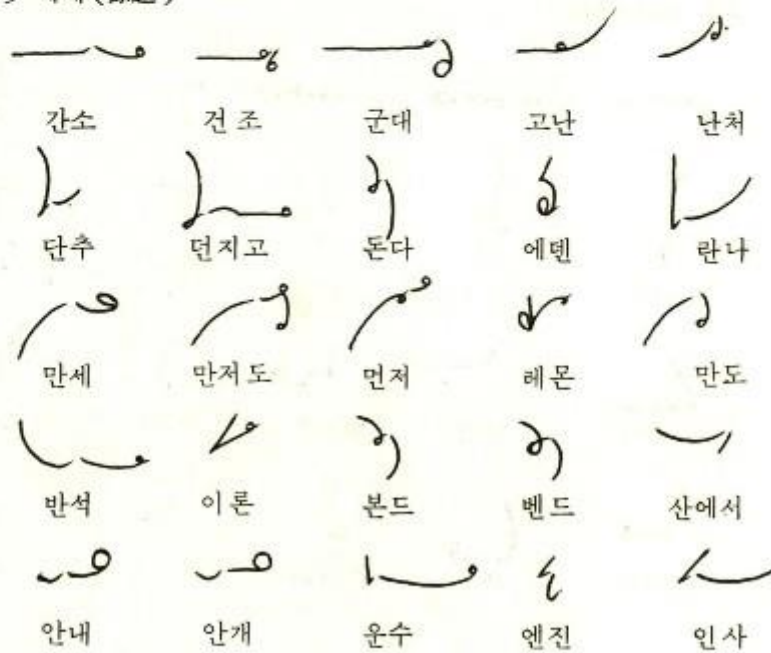 간소 건조 군대 고난 난처
단추 던지고 돈다 에덴 란나
만세 만저도 먼저 레몬 만도
반석 이론 본드 벤드 산에서
안내 안개 운수 엔진 인사